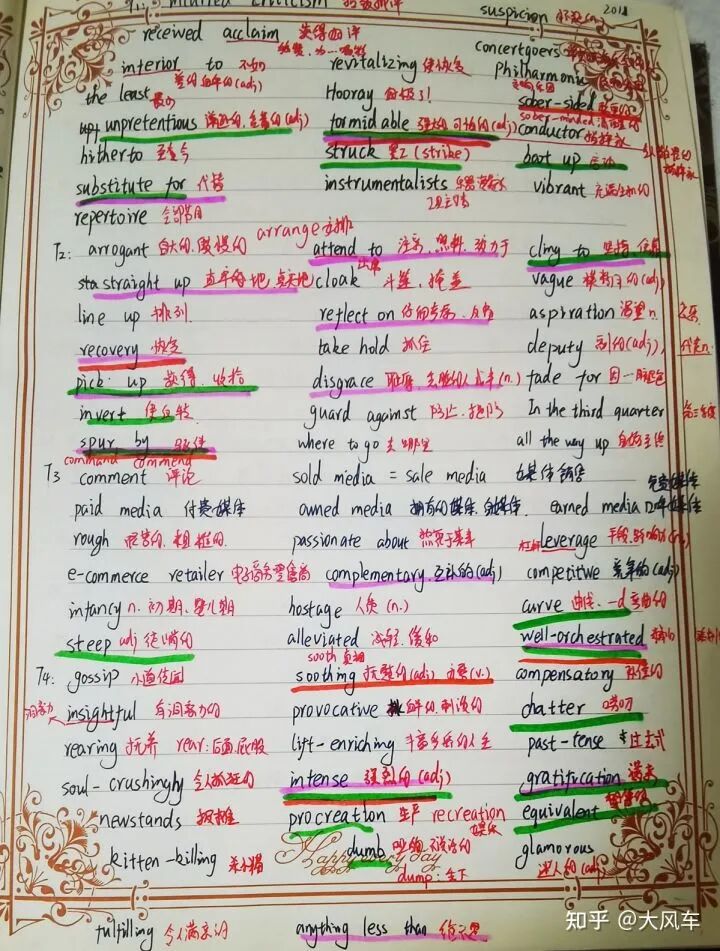 suspicion 2011
received acclaim 获得好评
concertgoers
interior to 不如 revitalizing 使恢复 Philharmonic
the least 最少 Hooray 好极了! sober-sided
sober-minded
unpretentious formidable 强大的 可怕的(adj) conductor 指挥家
hitherto 至今 struck 罢工(strike) boot up 启动
substitute for 代替 instrumentalists vibrant
repertoire 全部节目
T2: arrogant 自大的, 傲慢的 arrange 安排 attend to 注意, 照料, 致力于 cling to 坚持
straight up cloak 斗篷, 掩盖 vague 模糊的(adj)
line up 排列 reflect on 仔细考虑, 反省 aspiration 渴望 n.
recovery 恢复 take hold 抓住 deputy 副的(adj), 代表n.
pick up 获得, 收拾 disgrace 耻辱, 丢脸的人或事(n.) fade for
invert 使自转 guard against 防止, 提防 In the third quarter 第三季度
spur by 驱使 where to go 去哪里 all the way up 自始至终
command commend
T3 comment 评论 sold media = sale media 媒体销售
paid media 付费媒体 owned media 拥有的媒体, 自媒体 earned media 口碑媒体
rough 粗糙的 passionate about 热衷于某事 leverage 杠杆 手段, 影响力(n.)
e-commerce retailer 电子商务零售商 complementary 互补的(adj) competitwe 竞争的(adj)
intancy n. 初期, 婴儿期 hostage 人质(n.) curve 曲线, -d 弯曲的
steep adj 陡峭的 alleviated 减轻, 缓和 well-orchestrated
sooth 真相
T4: gossip 小道传闻 soothing 抚慰的(adj) 安慰(v.) compensatory 补偿的
洞察力 insightful 有洞察力的 provocative 挑衅的, 刺激的 chatter 唠叨
rearing 抚养 rear: 后面, 屁股 lift-enriching 丰富多彩的人生 past-tense 过去式
soul-crushingly 令人抓狂的 intense 强烈的(adj) gratification 满足
newstands 报摊 procreation 生产 recreation 娱乐 equivalent
kitten-killing 杀小猫 dumb glamorous 迷人的(adj)
Happy every day
dump: 生下
fulfilling 令人满意的 anything less than
知乎 @大风车